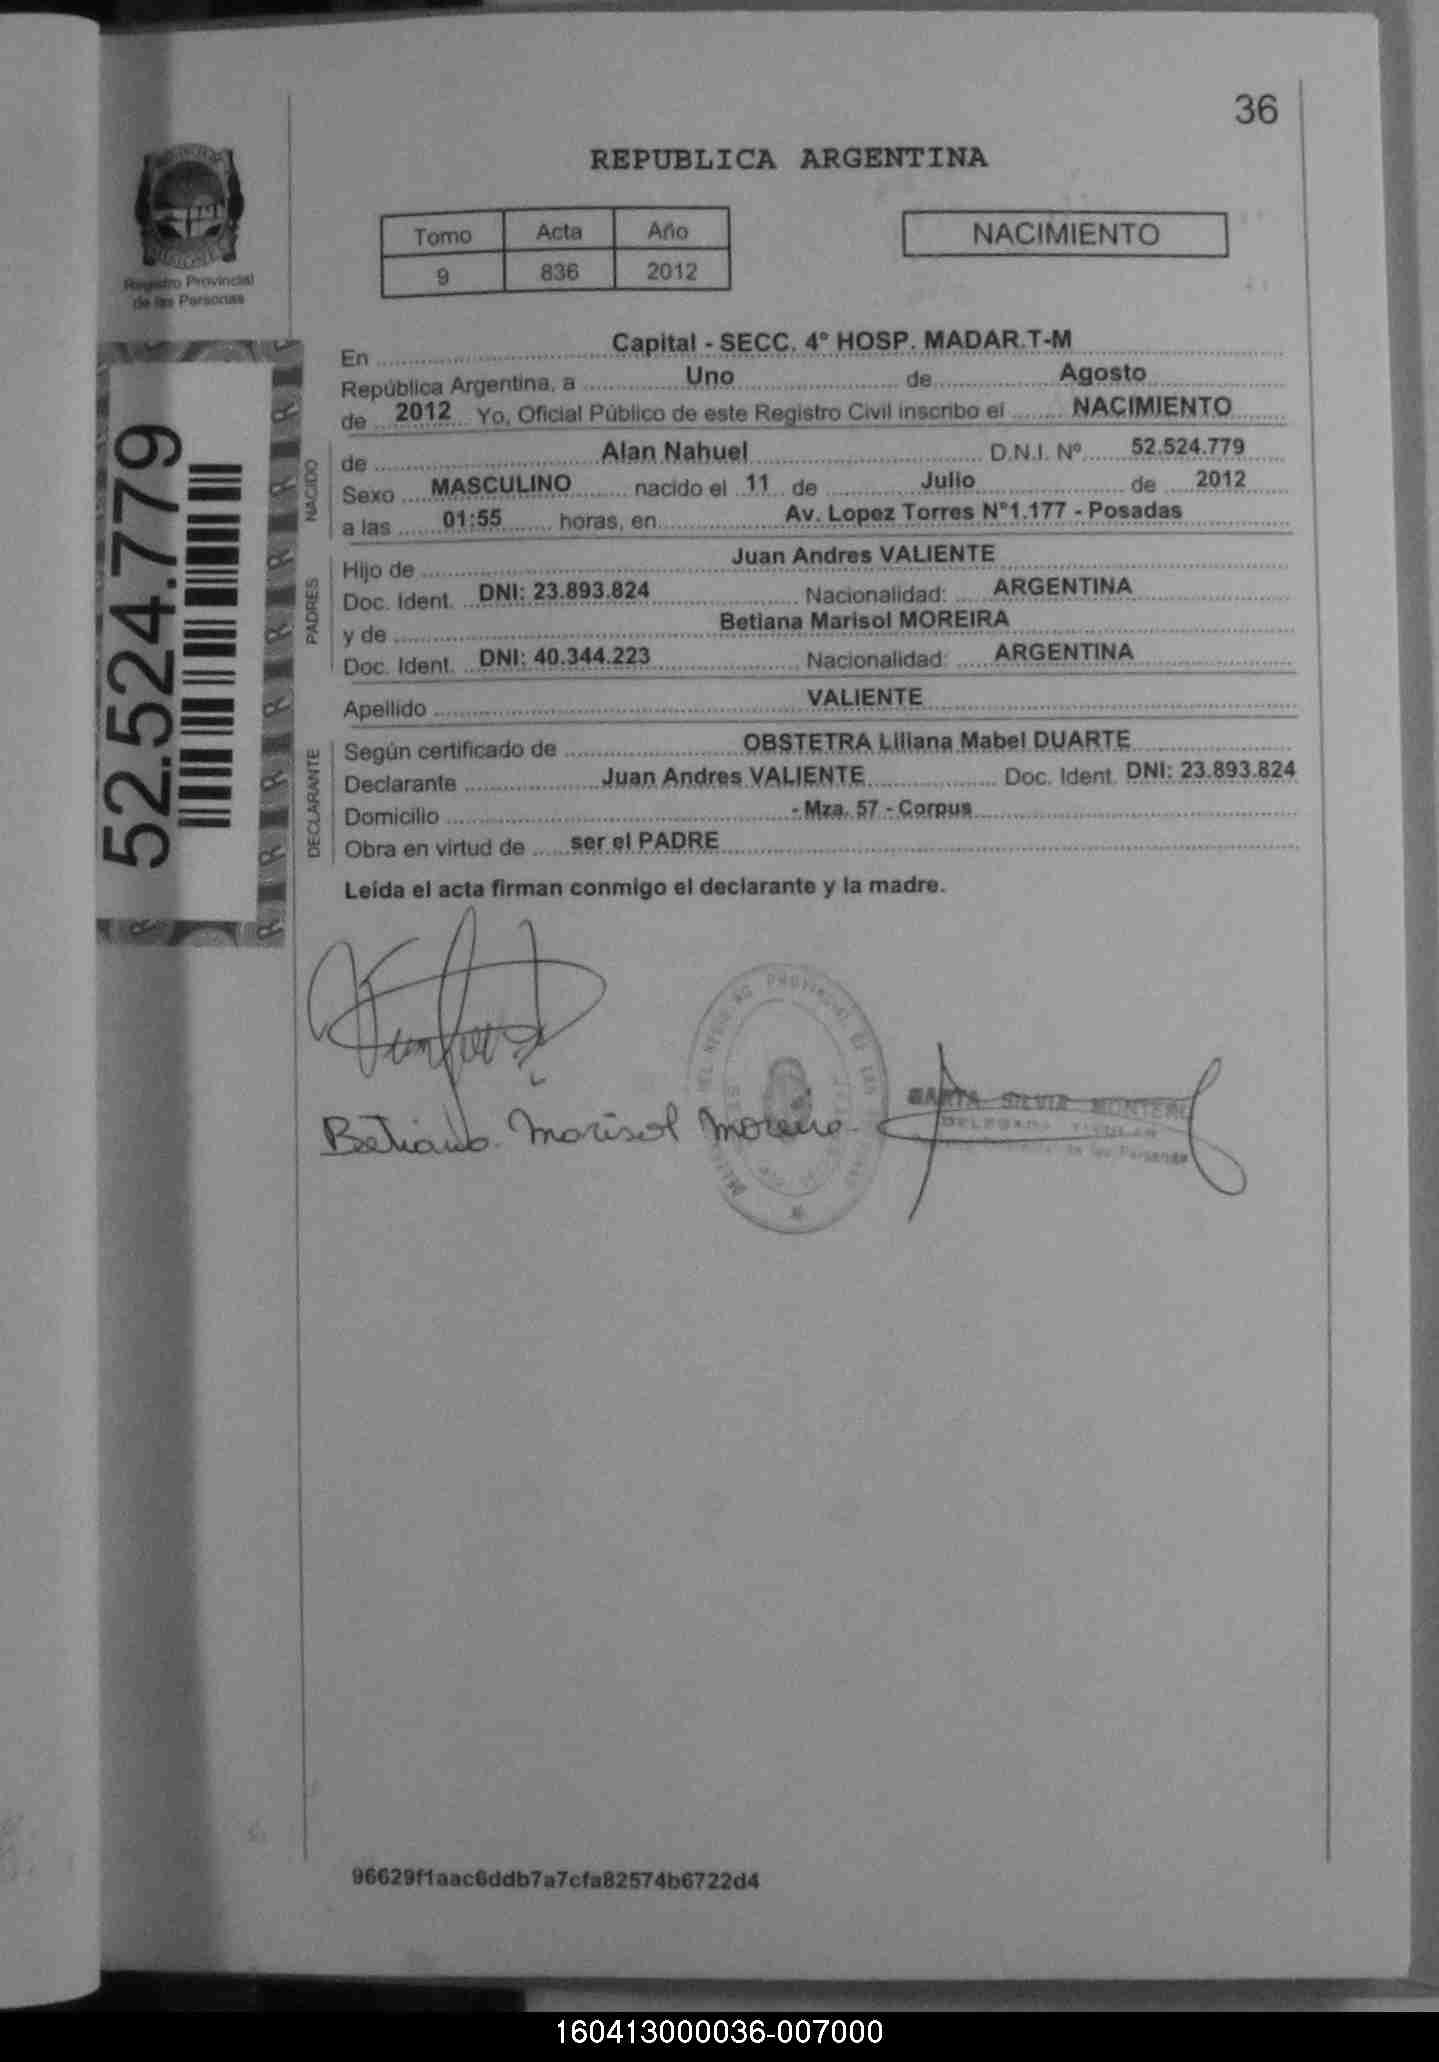 36
REPUBLICA ARGENTINA
Registro Provincial
de las Personas
Tomo Acta Año
9 836 2012
NACIMIENTO
52.524.779
En Capital - SECC. 4° HOSP. MADAR.T-M
República Argentina, a Uno de Agosto
de 2012 Yo, Oficial Público de este Registro Civil inscribo el NACIMIENTO
NACIDO
de Alan Nahuel D.N.I. Nº 52.524.779
Sexo MASCULINO nacido el 11 de Julio de 2012
a las 01:55 horas, en Av. Lopez Torres N°1.177 - Posadas
PADRES
Hijo de Juan Andres VALIENTE
Doc. Ident. DNI: 23.893.824 Nacionalidad: ARGENTINA
y de Betiana Marisol MOREIRA
Doc. Ident. DNI: 40.344.223 Nacionalidad: ARGENTINA
Apellido VALIENTE
DECLARANTE
Según certificado de OBSTETRA Liliana Mabel DUARTE
Declarante Juan Andres VALIENTE Doc. Ident. DNI: 23.893.824
Domicilio - Mza. 57 - Corpus
Obra en virtud de ser el PADRE
Leída el acta firman conmigo el declarante y la madre.
Betiana Marisol Moreira
SILVIA
DELEGADA TITULAR
de las Personas
96629f1aac6ddb7a7cfa82574b6722d4
160413000036-007000